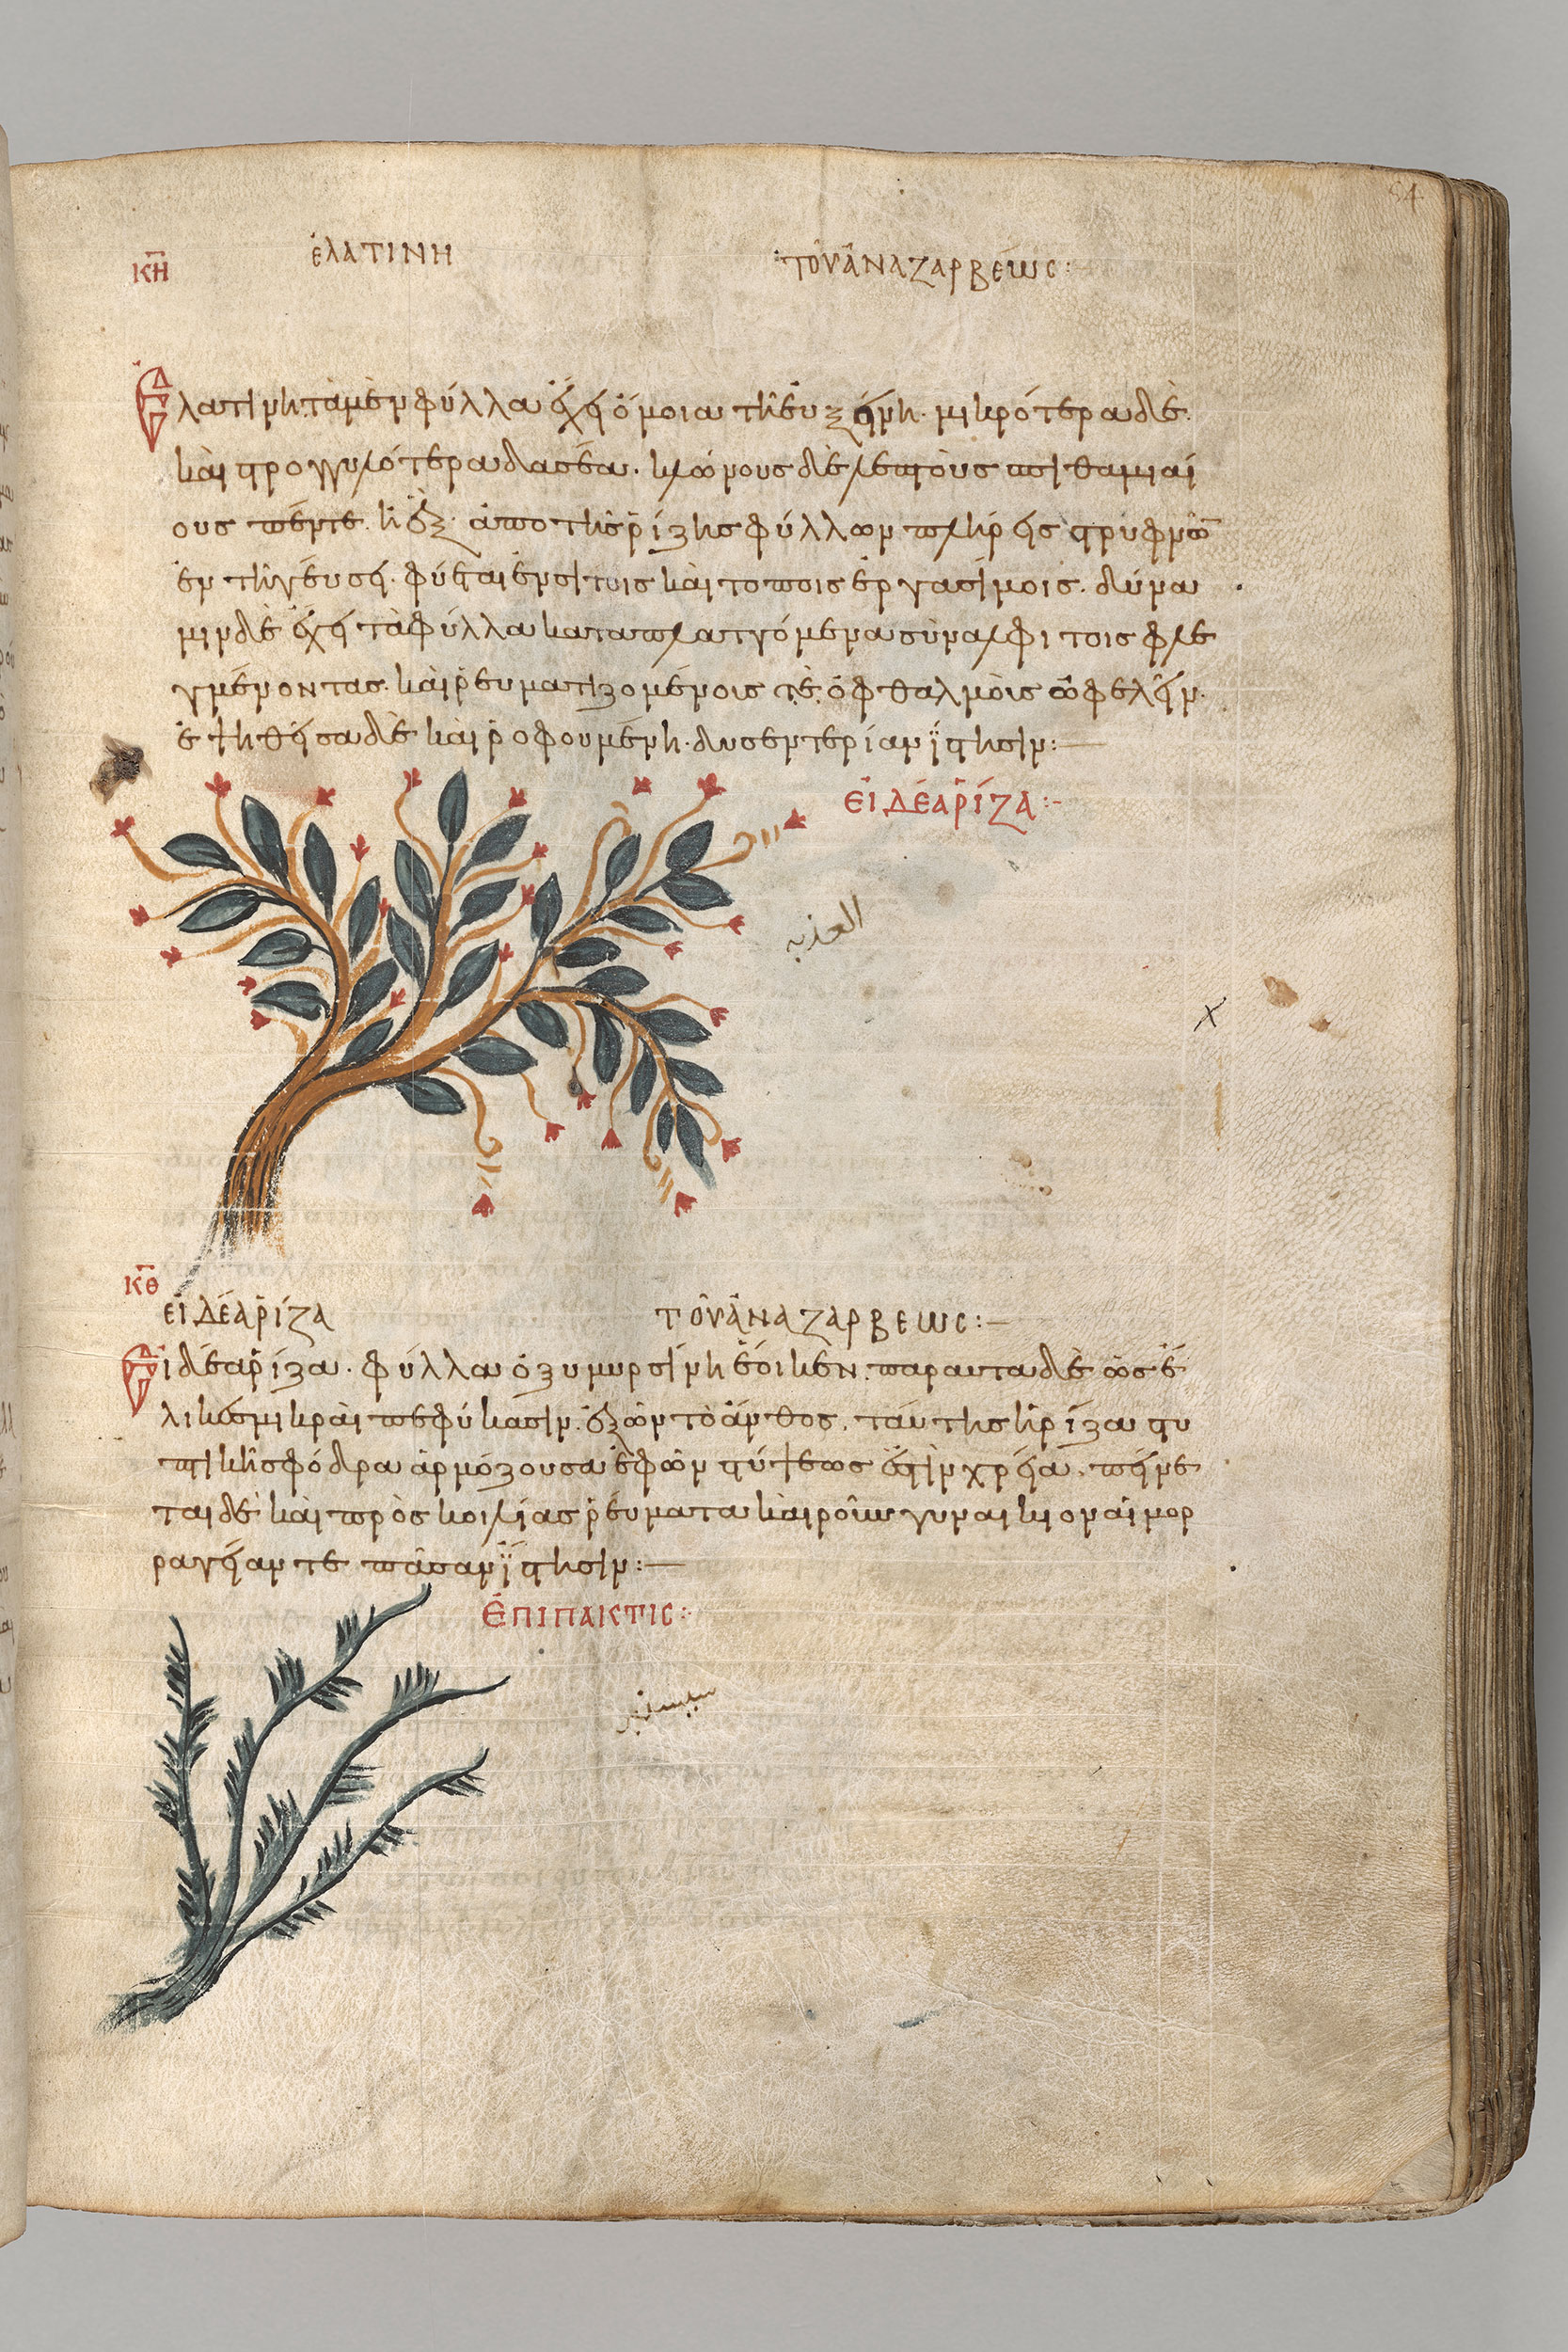 54
κη ἐλατίνη τοῦ ἀναζαρβέως:
Ἐλατίνη· τὰ μὲν φύλλα ἔχει ὅμοια τῆ ἑυξήνη· μικρότερα δὲ.
καὶ στρογγυλότερα δασέα. κλώνους δὲ λεπτοὺς σπιθαμιαί
ους πέντε. ἢ ἓξ· ἀπο τῆς ῥίζης φύλλων πλήρεις στρυφνῶν
ἐν τῆ γεύσει. φύεται ἐν σίτοις καὶ τοποις ἐργασίμοις. δύνα
μιν δὲ ἔχει τὰ φύλλα καταπλαττόμενα σὺν ἀλφίτοις φλε
γμένοντας. καὶ ῥευματιζομένοις τὲ ὀφθαλμὸις ὠφελεῖν.
ἑψηθεῖσα δὲ καὶ ῥοφουμένη. δυσεντερίαν ἵστησιν:—
ΕἸΔΈΑ ῬΊΖΑ:-
العذبه
κθ
εἰδέα ῥίζα τοῦ ἀναζαρβεως:—
Εἰδέα ῥίζα. φύλλα ὀξυμυρσίνη ἔοικεν. παρ αυτα δὲ ὡς ἕ
λικες μικραὶ πεφύκασιν. ἐξ ὧν τὸ ἄνθος. τάυτης ἡ ῥίζα στυ
πτικὴ σφόδρα ἁρμόζουσα ἐφ ὧν στύψεως ἐστὶν χρεία. πείνε
ται δὲ καὶ πρὸς κοιλίας ῥεύματα καὶ ροῦν γυναικιον αἱμορ
ραγείαν τε πᾶσαν ἵστησιν:—
ἘΠΙΠΑΚΤΙΣ:-